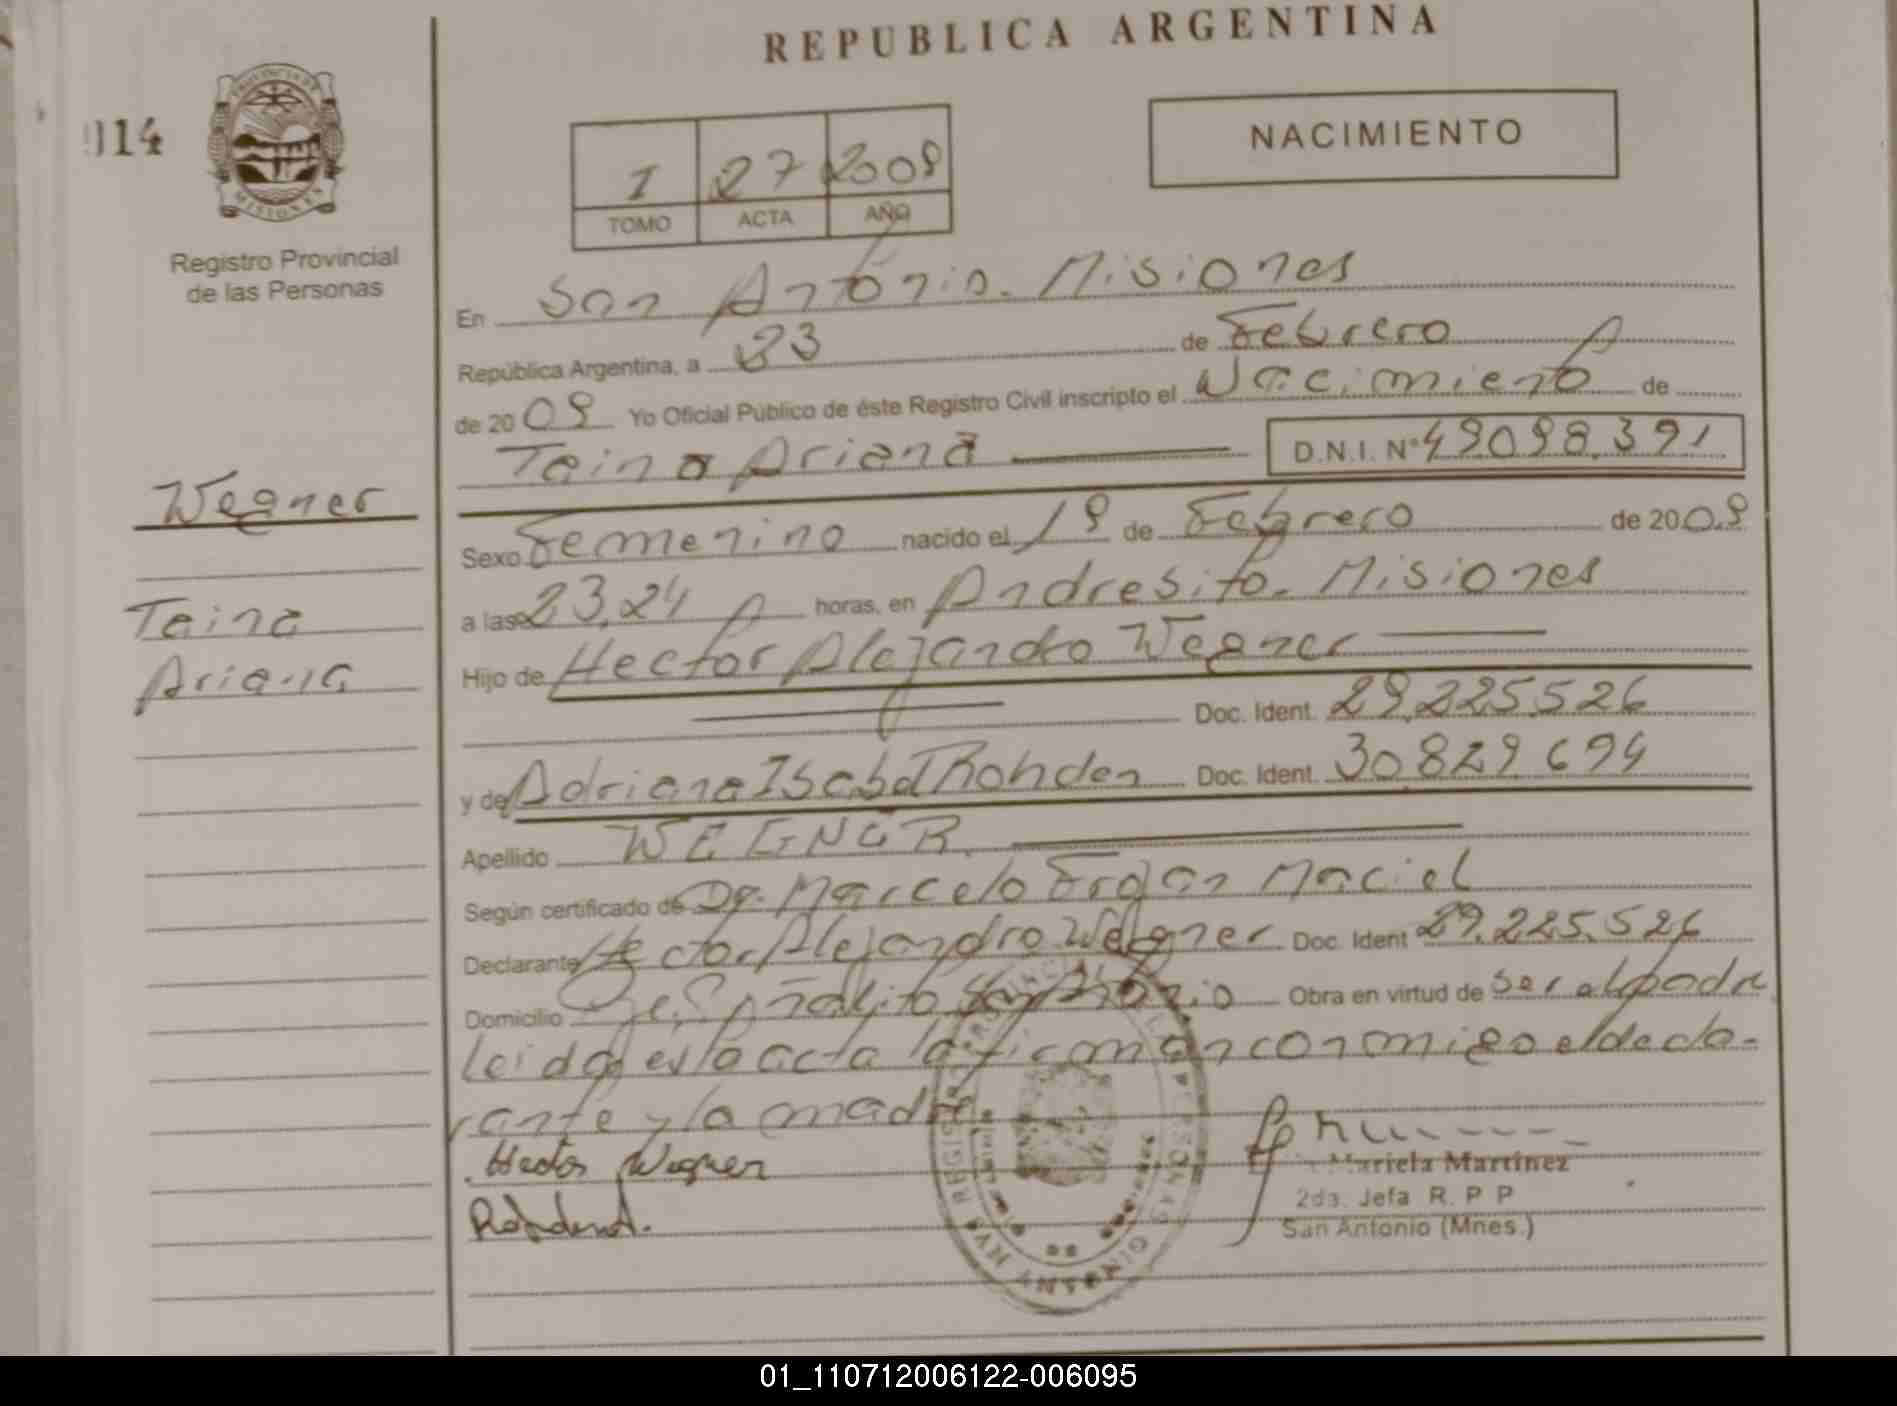 REPUBLICA ARGENTINA
014
PROVINCIA DE
MISIONES
Registro Provincial
de las Personas
I 27 2009
TOMO ACTA AÑO
NACIMIENTO
En San Antonio. Misiones
República Argentina, a 23 de Febrero
de 2009 Yo Oficial Público de éste Registro Civil inscripto el Nacimiento de
Taina Ariana D.N.I. Nº 49098.391
Wegner
Taina
Ariana
Sexo Femenino nacido el 19 de Febrero de 2009
a las 23,24 horas, en Andresito. Misiones
Hijo de Hector Alejandro Wegner
Doc. Ident. 29.225.526
y de Adriana Isabel Rohden Doc. Ident. 30829.694
Apellido WEGNER
Según certificado de Dr. Marcelo Maciel
Declarante Hector Alejandro Wegner Doc. Ident 29.225.526
Domicilio San Antonio Obra en virtud de ser el padre
leida esta acta la firman conmigo el decla-
rante y la madre.
Hector Wegner
Mariela Martinez
2da. Jefa R. P P
San Antonio (Mnes.)
01_110712006122-006095